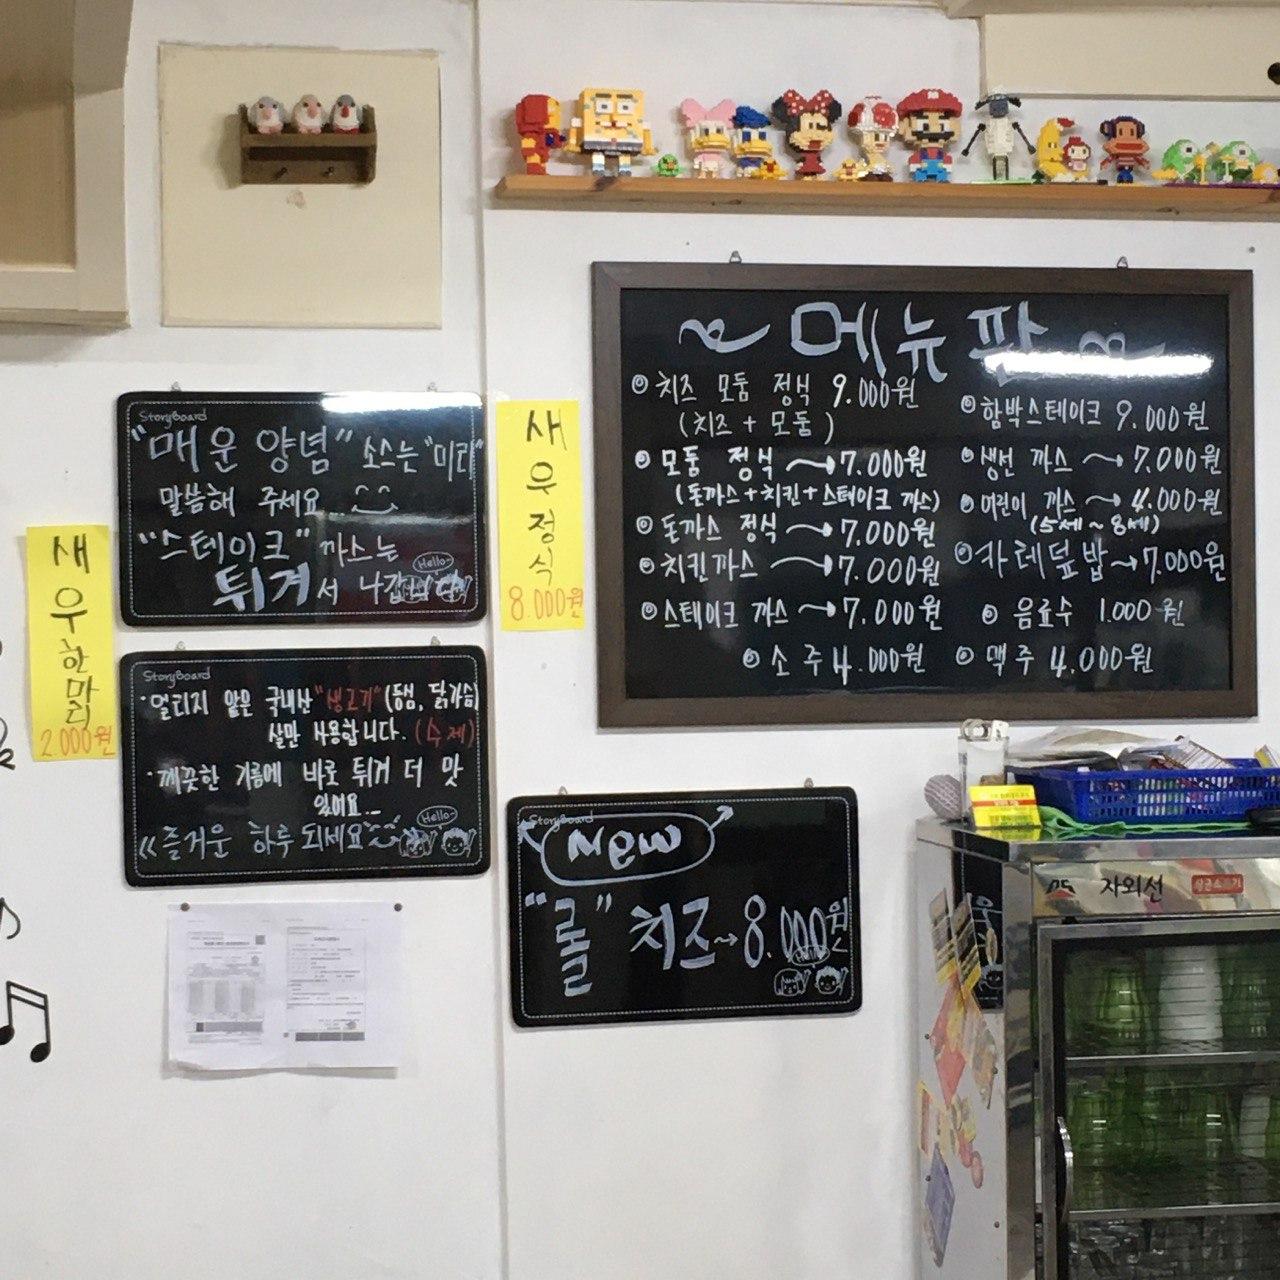 메뉴판
치즈 모둠 정식 9.000원
(치즈 + 모둠)
모둠 정식 → 7.000원
(돈까스 + 치킨 + 스테이크 까스)
돈까스 정식 → 7.000원
치킨까스 → 7.000원
스테이크 까스 → 7.000원
함박스테이크 9.000원
생선 까스 → 7.000원
어린이 까스 → 4.000원
(5세 ~ 8세)
카레덮밥 → 7.000원
음료수 1.000원
소주 4.000원
맥주 4.000원
StoryBoard
"매운 양념" 소스는 "미리"
말씀해 주세요...
"스테이크" 까스는
튀겨서 나갑니다
Hello~
새우정식
8.000원
새우한마리
2.000원
StoryBoard
·멀리지 않은 국내산 "생고기" (등심, 닭가슴)
살만 사용합니다. (수제)
·깨끗한 기름에 바로 튀겨 더 맛
있어요...
《즐거운 하루 되세요
Hello~
StoryBoard
New
"롤" 치즈 → 8.000원
Hello~
자외선